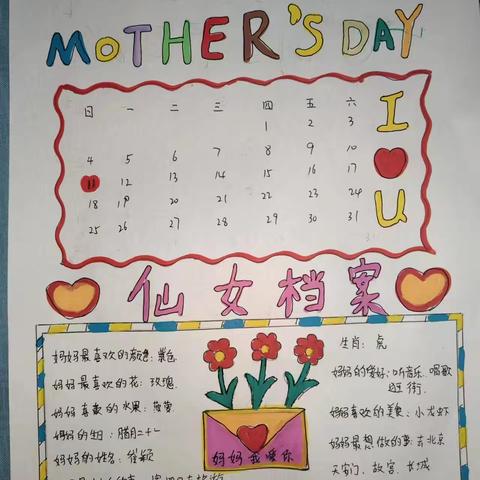 MOTHER'S DAY
日 一 二 三 四 五 六
1 2 3
4 5 6 7 8 9 10
11 12 13 14 15 16 17
18 19 20 21 22 23 24
25 26 27 28 29 30 31
I
U
仙女档案
妈妈最喜欢的颜色：紫色
妈妈最喜欢的花：玫瑰
妈妈喜欢的水果：
妈妈的生日：腊月二十一
妈妈的姓名：崔颖
妈妈我爱你
生肖：虎
妈妈的爱好：听音乐、唱歌
逛街
妈妈喜欢的美食：小龙虾
妈妈最想做的事：去北京
天安门、故宫、长城